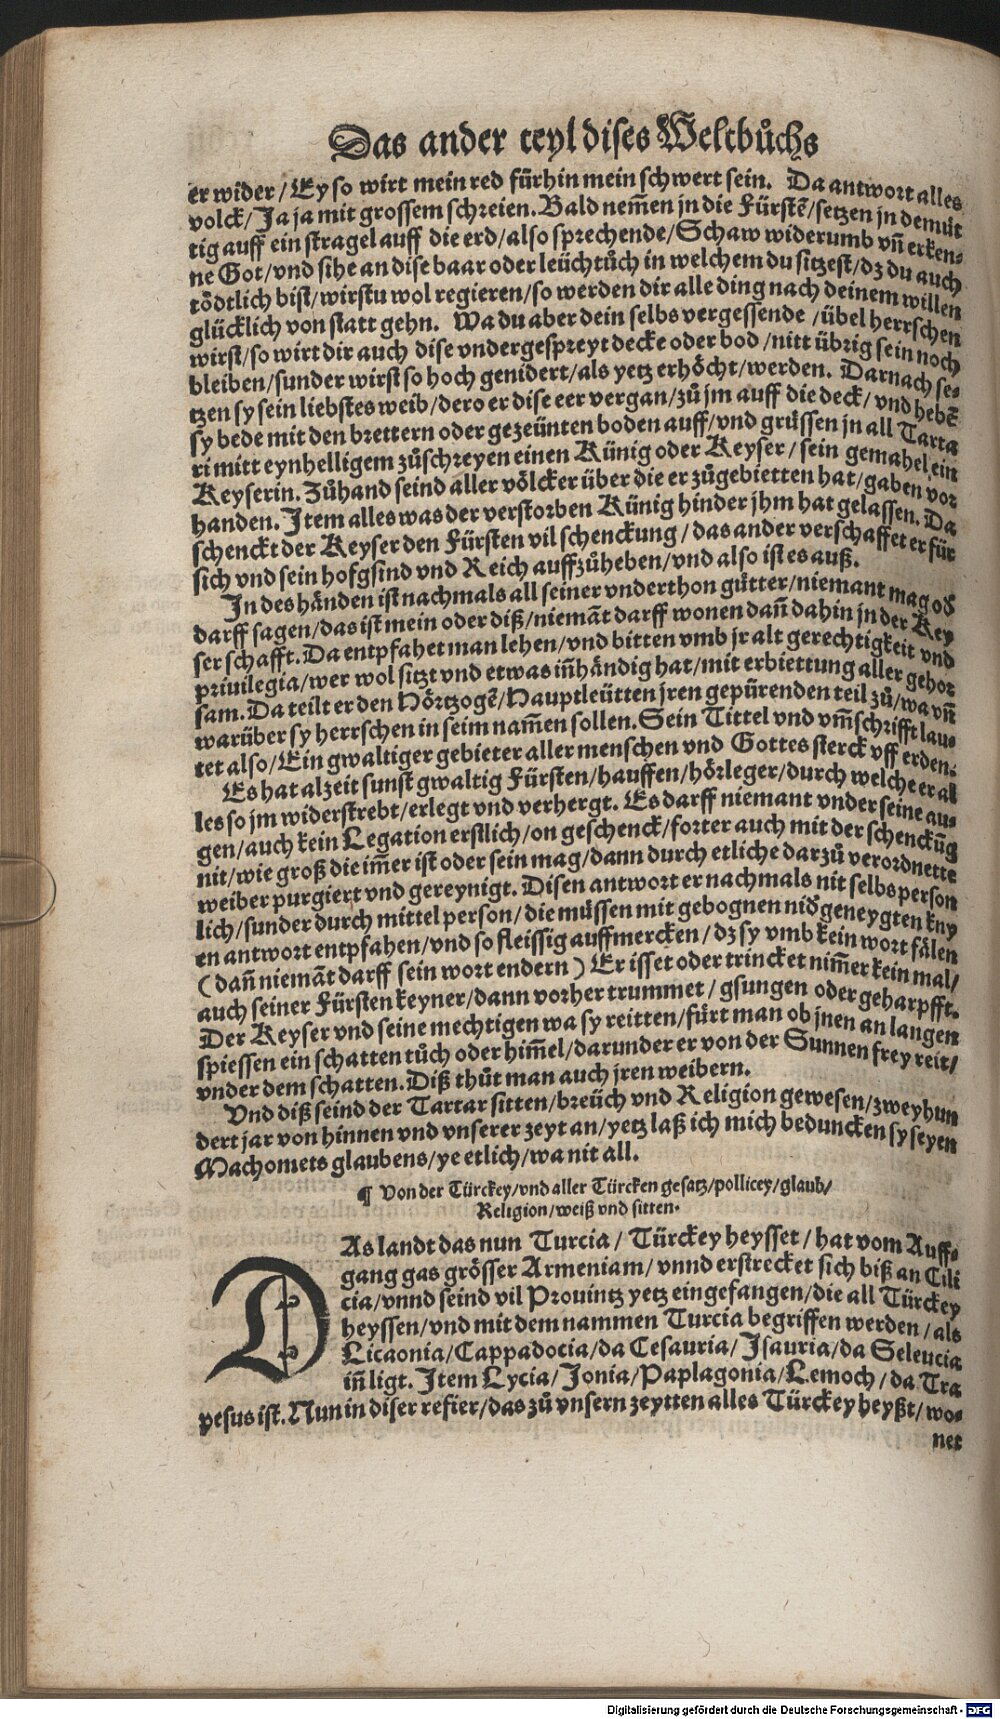 Das ander teyl dises Weltbůchs
er wider / Ey so wirt mein red fürhin mein schwert sein. Da antwort alles
volck / Ja ja mit grossem schreien. Bald nem̃en jn die Fürstẽ / setzen jn demůt
tig auff ein stragel auff die erd / also sprechende / Schaw widerumb vñ erken⸗
ne Got / vnd sihe an dise baar oder leüchtůch in welchem du sitzest / dz du auch
tödtlich bist / wirstu wol regieren / so werden dir alle ding nach deinem willen
glücklich von statt gehn. Wa du aber dein selbs vergessende / übel herrschen
wirst / so wirt dir auch dise vndergespreyt decke oder bod / nitt übrig sein noch
bleiben / sunder wirst so hoch genidert / als yetz erhöcht / werden. Darnach se⸗
tzen sy sein liebstes weib / dero er dise eer vergan / zů jm auff die deck / vnd hebẽ
sy bede mit den brettern oder gezeünten boden auff / vnd grüssen jn all Tarta
ri mitt eynhelligem zůschreyen einen Künig oder Keyser / sein gemahel ein
Keyserin. Zůhand seind aller völcker über die er zůgebietten hat / gaben vor
handen. Item alles was der verstorben Künig hinder jhm hat gelassen. Da
schenckt der Keyser den Fürsten vil schenckung / das ander verschaffet er für
sich vnd sein hofgsind vnd Reich auffzůheben / vnd also ist es auß.
In des händen ist nachmals all seiner vnderthon gütter / niemant mag od̕
darff sagen / das ist mein oder diß / niemãt darff wonen dañ dahin jn der Key
ser schafft. Da entpfahet man lehen / vnd bitten vmb jr alt gerechtigkeit vnd
priuilegia / wer wol sitzt vnd etwas iñhändig hat / mit erbiettung aller gehor
sam. Da teilt er den Hörtzogẽ / Hauptleütten jren gepürenden teil zů / wa vñ
warüber sy herrschen in seim nam̃en sollen. Sein Tittel vnd vm̃schrifft lau⸗
tet also / Ein gwaltiger gebieter aller menschen vnd Gottes sterck vff erden.
Es hat alzeit sunst gwaltig Fürsten / hauffen / hörleger / durch welche er al
les so jm widerstrebt / erlegt vnd verhergt. Es darff niemant vnder seine au⸗
gen / auch kein Legation erstlich / on geschenck / forter auch mit der schenckũg
nit / wie groß die im̃er ist oder sein mag / dann durch etliche darzů verordnette
weiber purgiert vnd gereynigt. Disen antwort er nachmals nit selbs person
lich / sunder durch mittel person / die müssen mit gebognen nid̕geneygten kny
en antwort entpfahen / vnd so fleissig auffmercken / dz sy vmb kein wort fälen
(dañ niemãt darff sein wort endern) Er isset oder trincket nim̃er kein mal /
auch seiner Fürsten keyner / dann vorher trummet / gsungen oder geharpfft.
Der Keyser vnd seine mechtigen wa sy reitten / fürt man ob jnen an langen
spiessen ein schatten tůch oder him̃el / darunder er von der Sunnen frey reit /
vnder dem schatten. Diß thůt man auch jren weibern.
Vnd diß seind der Tartar sitten / breüch vnd Religion gewesen / zweyhun
dert jar von hinnen vnd vnserer zeyt an / yetz laß ich mich beduncken sy seyen
Machomets glaubens / ye etlich / wa nit all.
¶ Von der Türckey / vnd aller Türcken gesatz / pollicey / glaub /
Religion / weiß vnd sitten.
DAs landt das nun Turcia / Türckey heysset / hat vom Auff⸗
gang gas grösser Armeniam / vnnd erstrecket sich biß an Cili
cia / vnnd seind vil Prouintz yetz eingefangen / die all Türckey
heyssen / vnd mit dem nammen Turcia begriffen werden / als
Licaonia / Cappadocia / da Cesauria / Isauria / da Seleucia
iñ ligt. Item Lycia / Jonia / Paplagonia / Lemoch / da Tra
pesus ist. Nun in diser refier / das zů vnsern zeytten alles Türckey heyßt / wo⸗
net
Digitalisierung gefördert durch die Deutsche Forschungsgemeinschaft - DFG